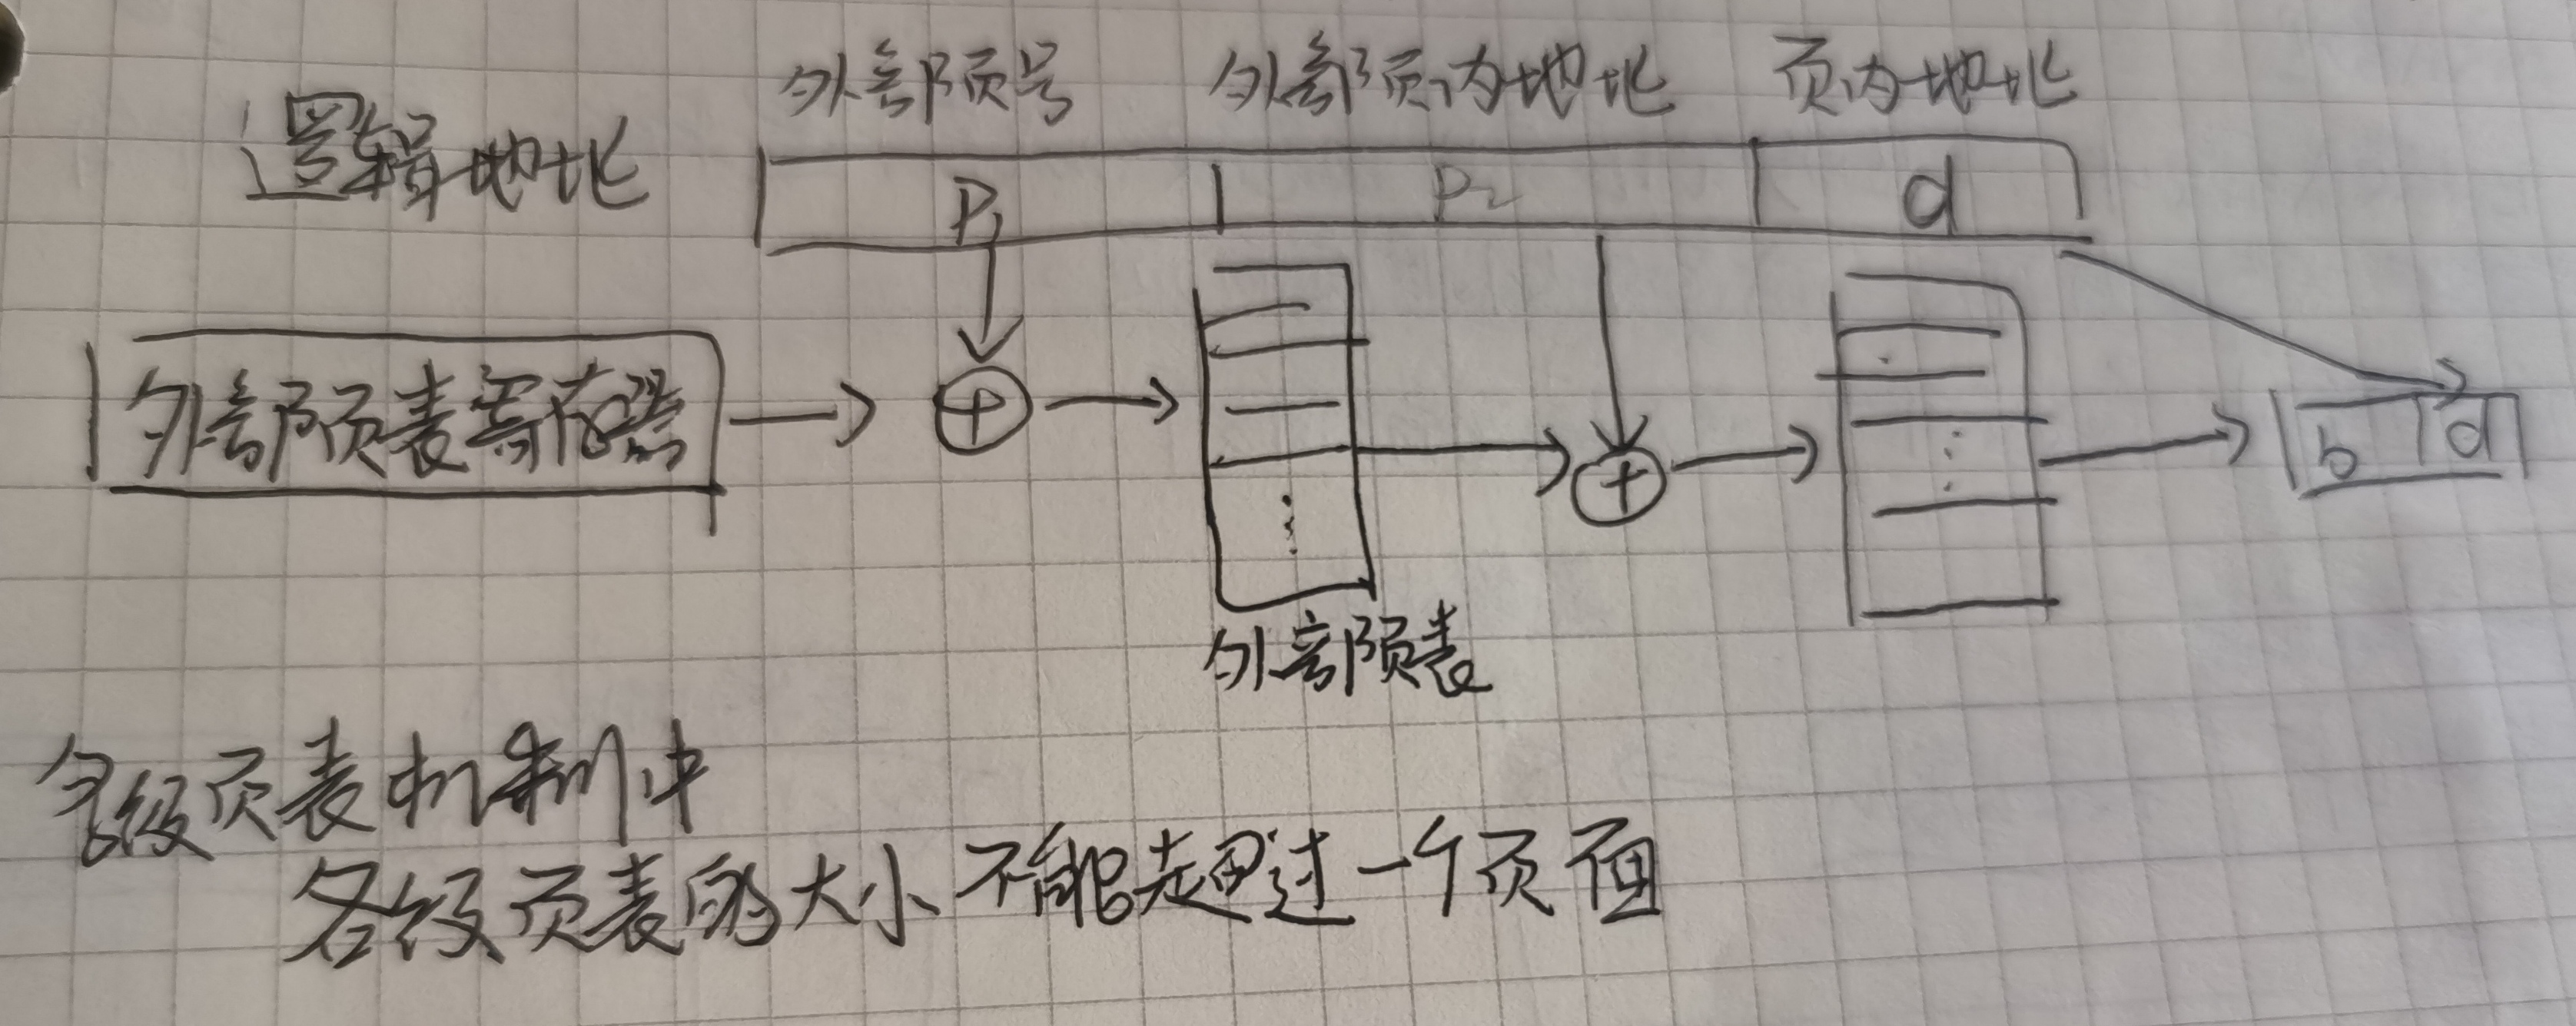 外部页号 外部页内地址 页内地址
逻辑地址
P1 P2 d
外部页表寄存器
b d
外部页表
多级页表机制中
各级页表的大小不能超过一个页面